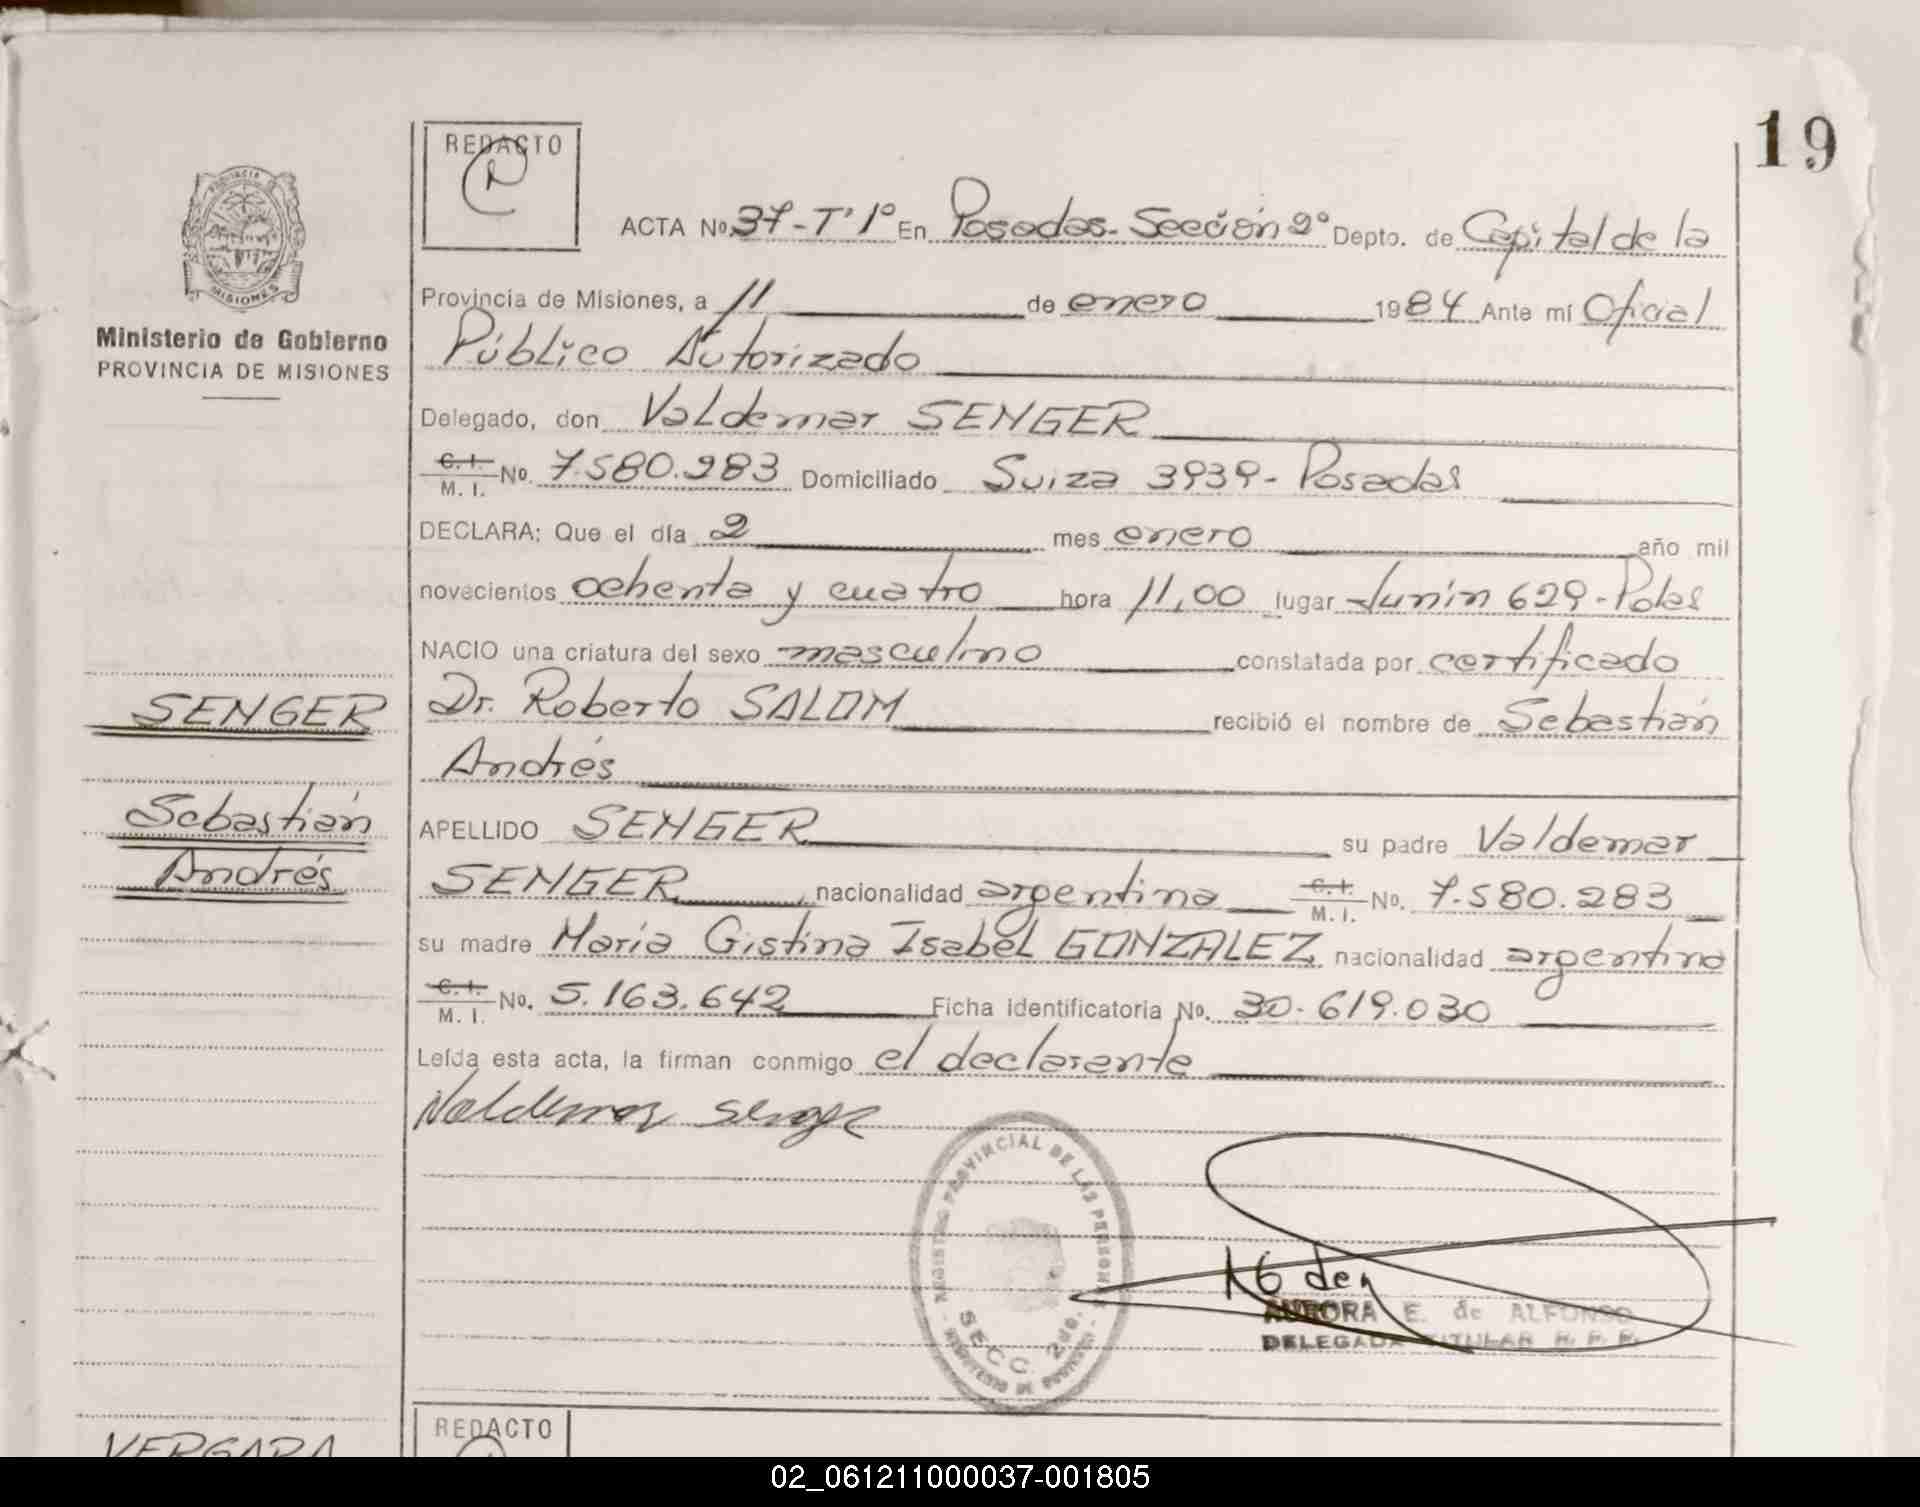 19
REDACTO
ACTA Nº 37-Tº 1º En Posadas- Sección 2º Depto. de Capital de la
PROVINCIA DE
MISIONES
Ministerio de Gobierno
PROVINCIA DE MISIONES
Provincia de Misiones, a 11 de enero 1984 Ante mí Oficial
Público Autorizado
Delegado, don Valdemar SENGER
C. I. M. I. No. 7.580.283 Domiciliado Suiza 3939- Posadas
DECLARA: Que el día 2 mes enero año mil
novecientos ochenta y cuatro hora 11,00 lugar Junin 629-Pdas
NACIO una criatura del sexo masculino constatada por certificado
SENGER
Dr. Roberto SALOM recibió el nombre de Sebastián
Andrés
Sebastián
Andrés
APELLIDO SENGER su padre Valdemar
SENGER nacionalidad argentina C. I. M. I. No. 7.580.283
su madre María Cristina Isabel GONZALEZ nacionalidad argentina
C. I. M. I. No. 5.163.642 Ficha identificatoria No. 30.619.030
Leída esta acta, la firman conmigo el declarante
Valdemar Senger
REGISTRO PROVINCIAL DE LAS PERSONAS
SECC. 2da.
AURORA E. de ALFONSO
DELEGADA TITULAR R. P. P.
REDACTO
VERGARA
02_061211000037-001805